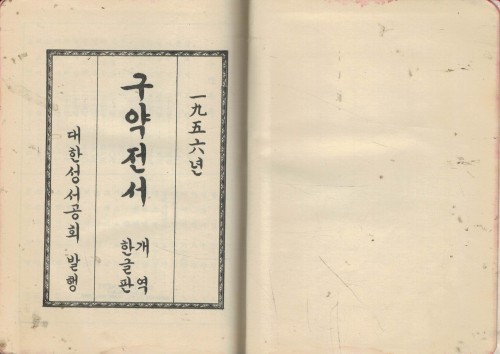 一九五六년
구약전서
개역
한글판
대한성서공회 발행